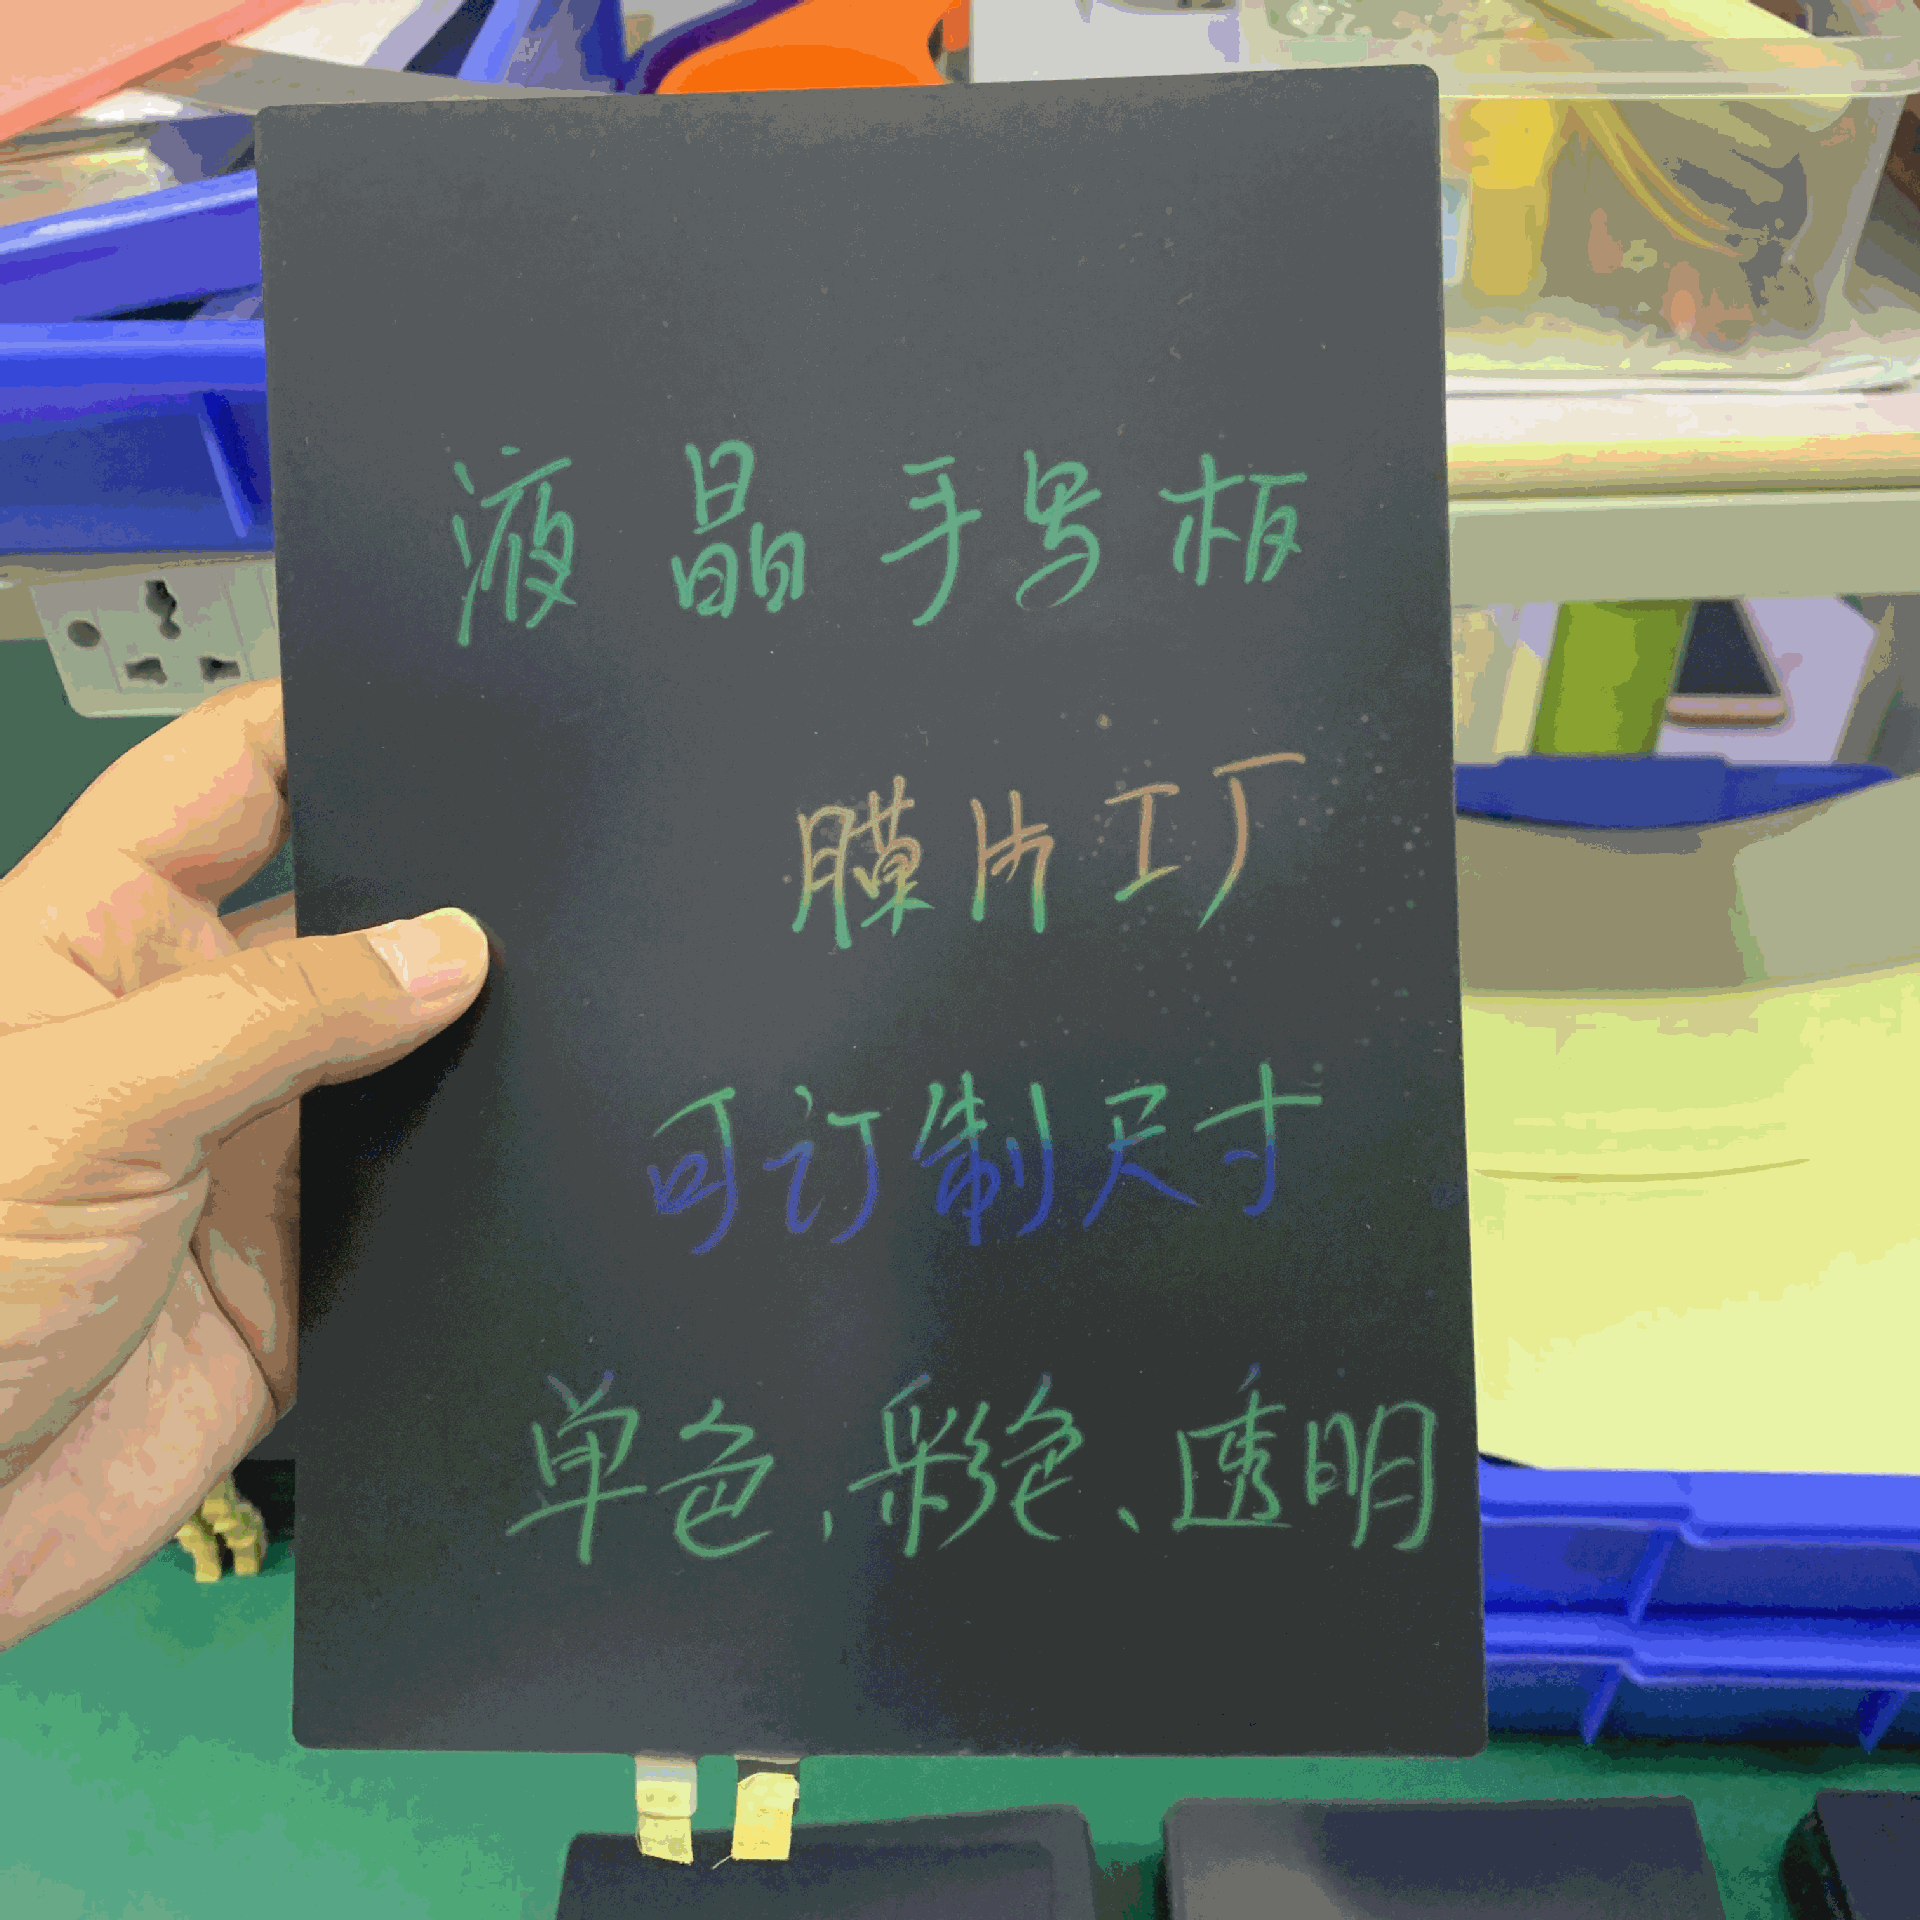 液晶手写板
膜片工厂
可订制尺寸
单色,彩色、透明